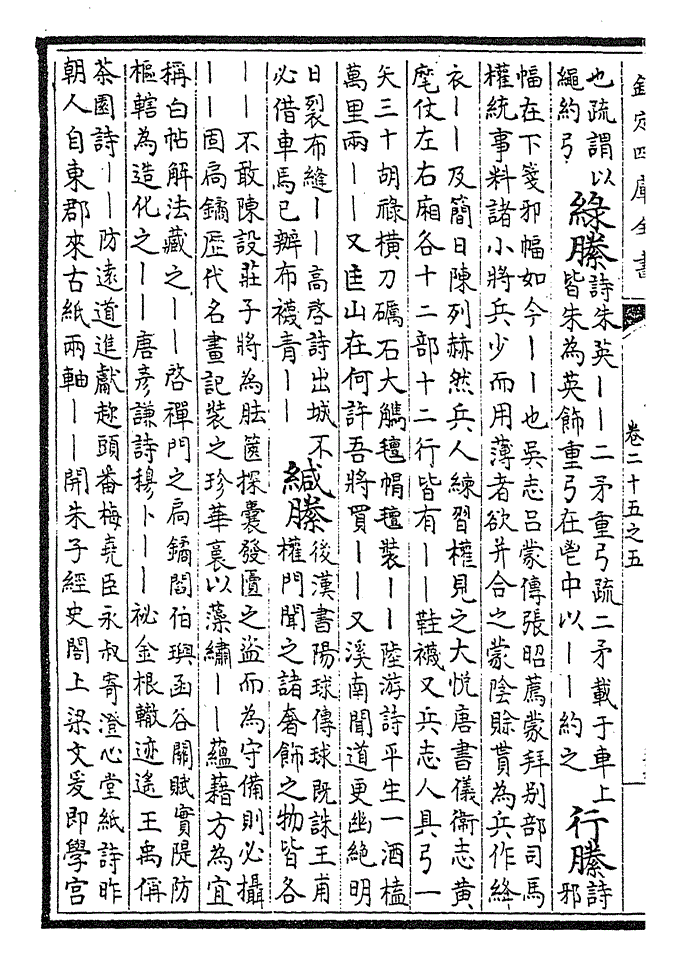 欽定四庫全書
卷二十五之五
也疏謂以
繩約弓
緑縢
詩朱英一一二矛重弓疏二矛載于車上
皆朱為英飾重弓在鬯中以一一約之
行縢
詩
邪
幅在下箋邪幅如今一一也吳志吕蒙傳張昭薦蒙拜别部司馬
權統事料諸小將兵少而用薄者欲并合之蒙陰賒貰為兵作絳
衣一一及簡日陳列赫然兵人練習權見之大悦唐書儀衛志黄
麾仗左右廂各十二部十二行皆有一一鞋襪又兵志人具弓一
矢三十胡祿横刀礪石大觿氊帽氊裝一一陸游詩平生一酒榼
萬里兩一一又匡山在何許吾將買一一又溪南聞道更幽絶明
日裂布縫一一高啓詩出城不
必借車馬已辦布襪青一一
緘縢
後漢書陽球傳球既誅王甫
權門聞之諸奢飾之物皆各
一一不敢陳設莊子將為胠篋探囊發匱之盜而為守備則必攝
一一固扃鐍歷代名畫記裝之珍華裛以藻繡一一蘊藉方為宜
稱白帖解法藏之一一啓禪門之扃鐍閻伯璵函谷關賦實隄防
樞轄為造化之一一唐彦謙詩穆卜一一祕金根轍迹遙王禹偁
茶園詩一一防遠道進獻趂頭番梅堯臣永叔寄澄心堂紙詩昨
朝人自東郡來古紙兩軸一一開朱子經史閣上梁文爰即學宫